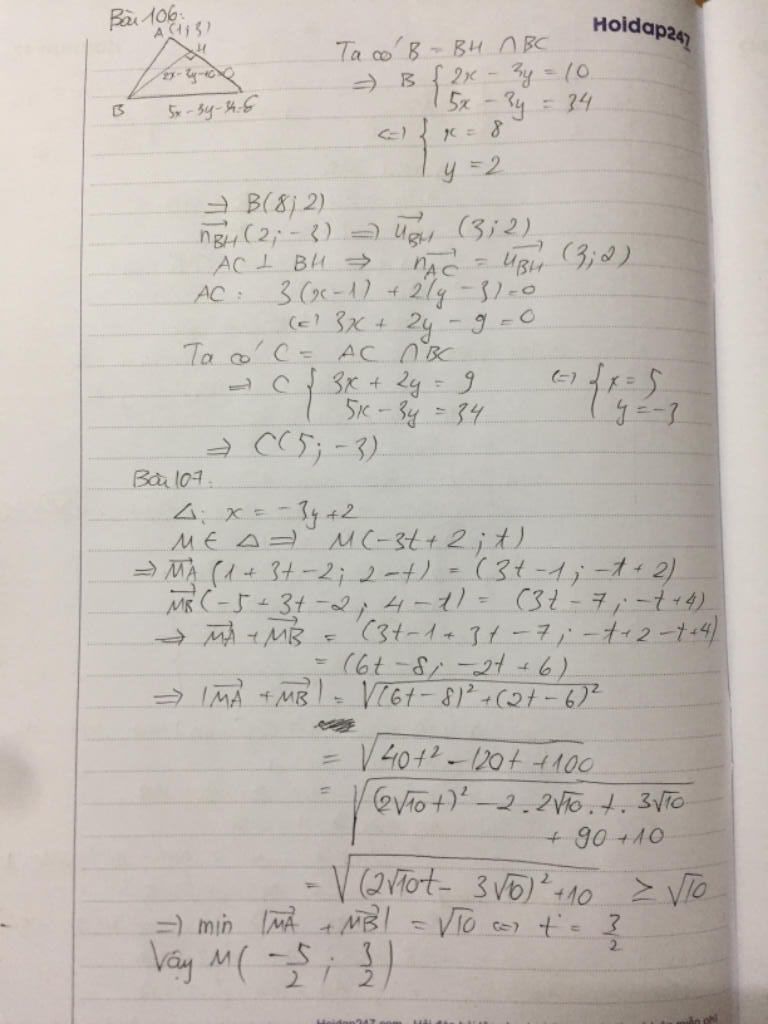 Bài 106:
Hoidap247
A(1;3)
H
2x-3y-10=0
B
5x-3y-34=0
Ta có B = BH ∩ BC
=> B { 2x - 3y = 10
5x - 3y = 34
<=> { x = 8
y = 2
=> B(8;2)
n⃗BH(2;-3) => u⃗BH (3;2)
AC ⊥ BH => n⃗AC = u⃗BH (3;2)
AC: 3(x-1) + 2(y-3)=0
<=> 3x + 2y - 9 = 0
Ta có C = AC ∩ BC
=> C { 3x + 2y = 9 <=> { x = 5
5x - 3y = 34 y = -3
=> C(5;-3)
Bài 107:
Δ: x = -3y+2
M ∈ Δ => M(-3t+2;t)
=> M⃗A (1+3t-2; 2-t) = (3t-1; -t+2)
M⃗B (-5+3t-2; 4-t) = (3t-7; -t+4)
=> M⃗A + M⃗B = (3t-1+3t-7; -t+2-t+4)
= (6t-8; -2t+6)
=> |M⃗A + M⃗B| = √((6t-8)² + (2t-6)²)
= √(40t² - 120t + 100)
= √((2√10t)² - 2.2√10.t.3√10
+ 90 + 10)
= √((2√10t - 3√10)² + 10) ≥ √10
=> min |M⃗A + M⃗B| = √10 <=> t = 3/2
Vậy M(-5/2; 3/2)